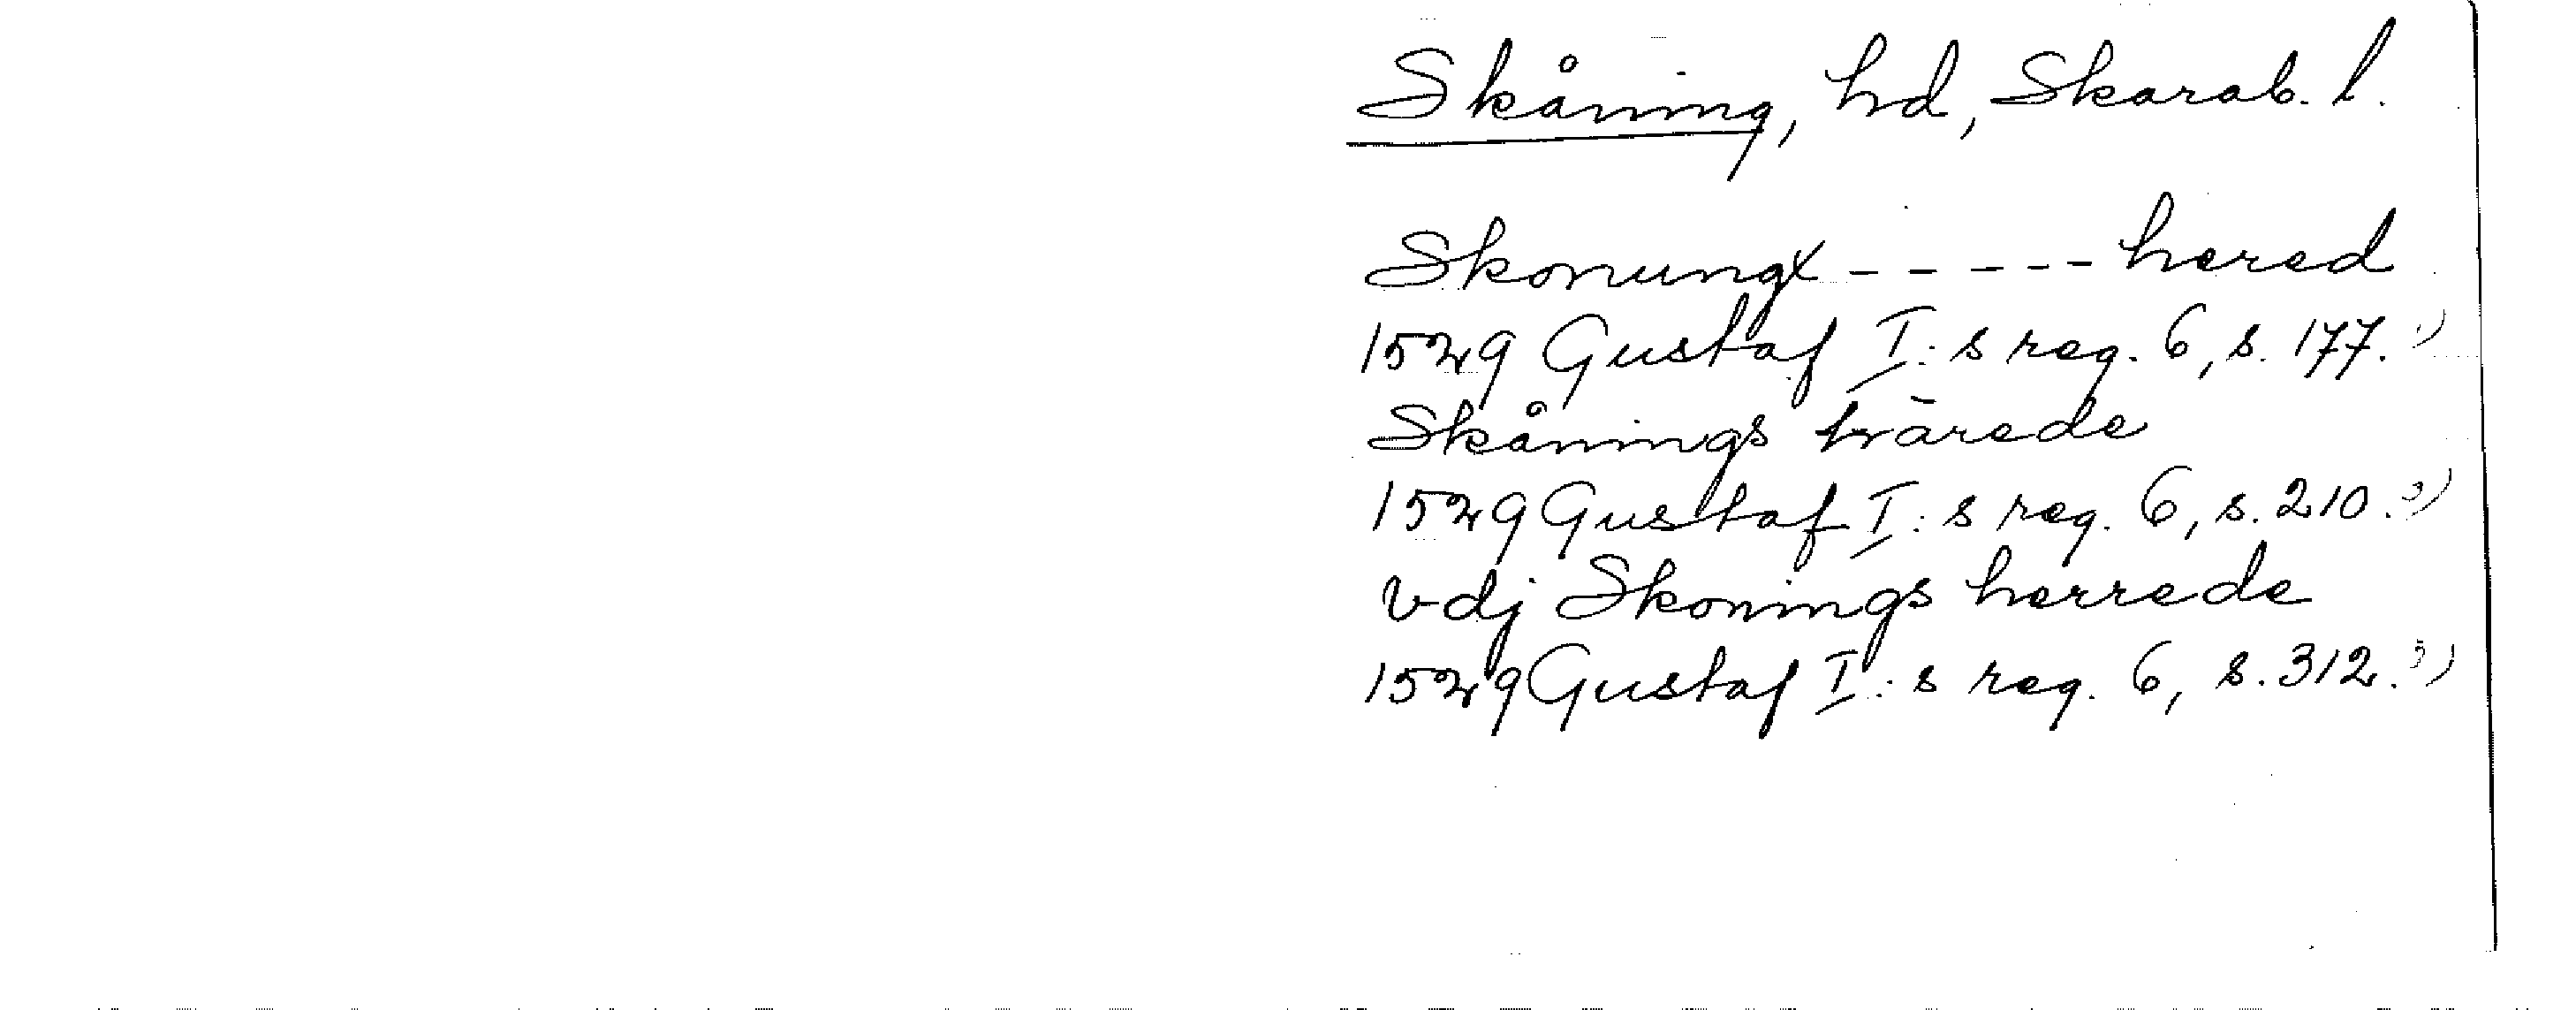 Skåning, hd, Skarab. l.
Skonungx - - - - - hered
1529 Gustaf I:s reg. 6, s. 177.
Skånings härede
1529 Gustaf I:s reg. 6, s. 210.
vdj Skonings herrede
1529 Gustaf I:s reg. 6, s. 312.